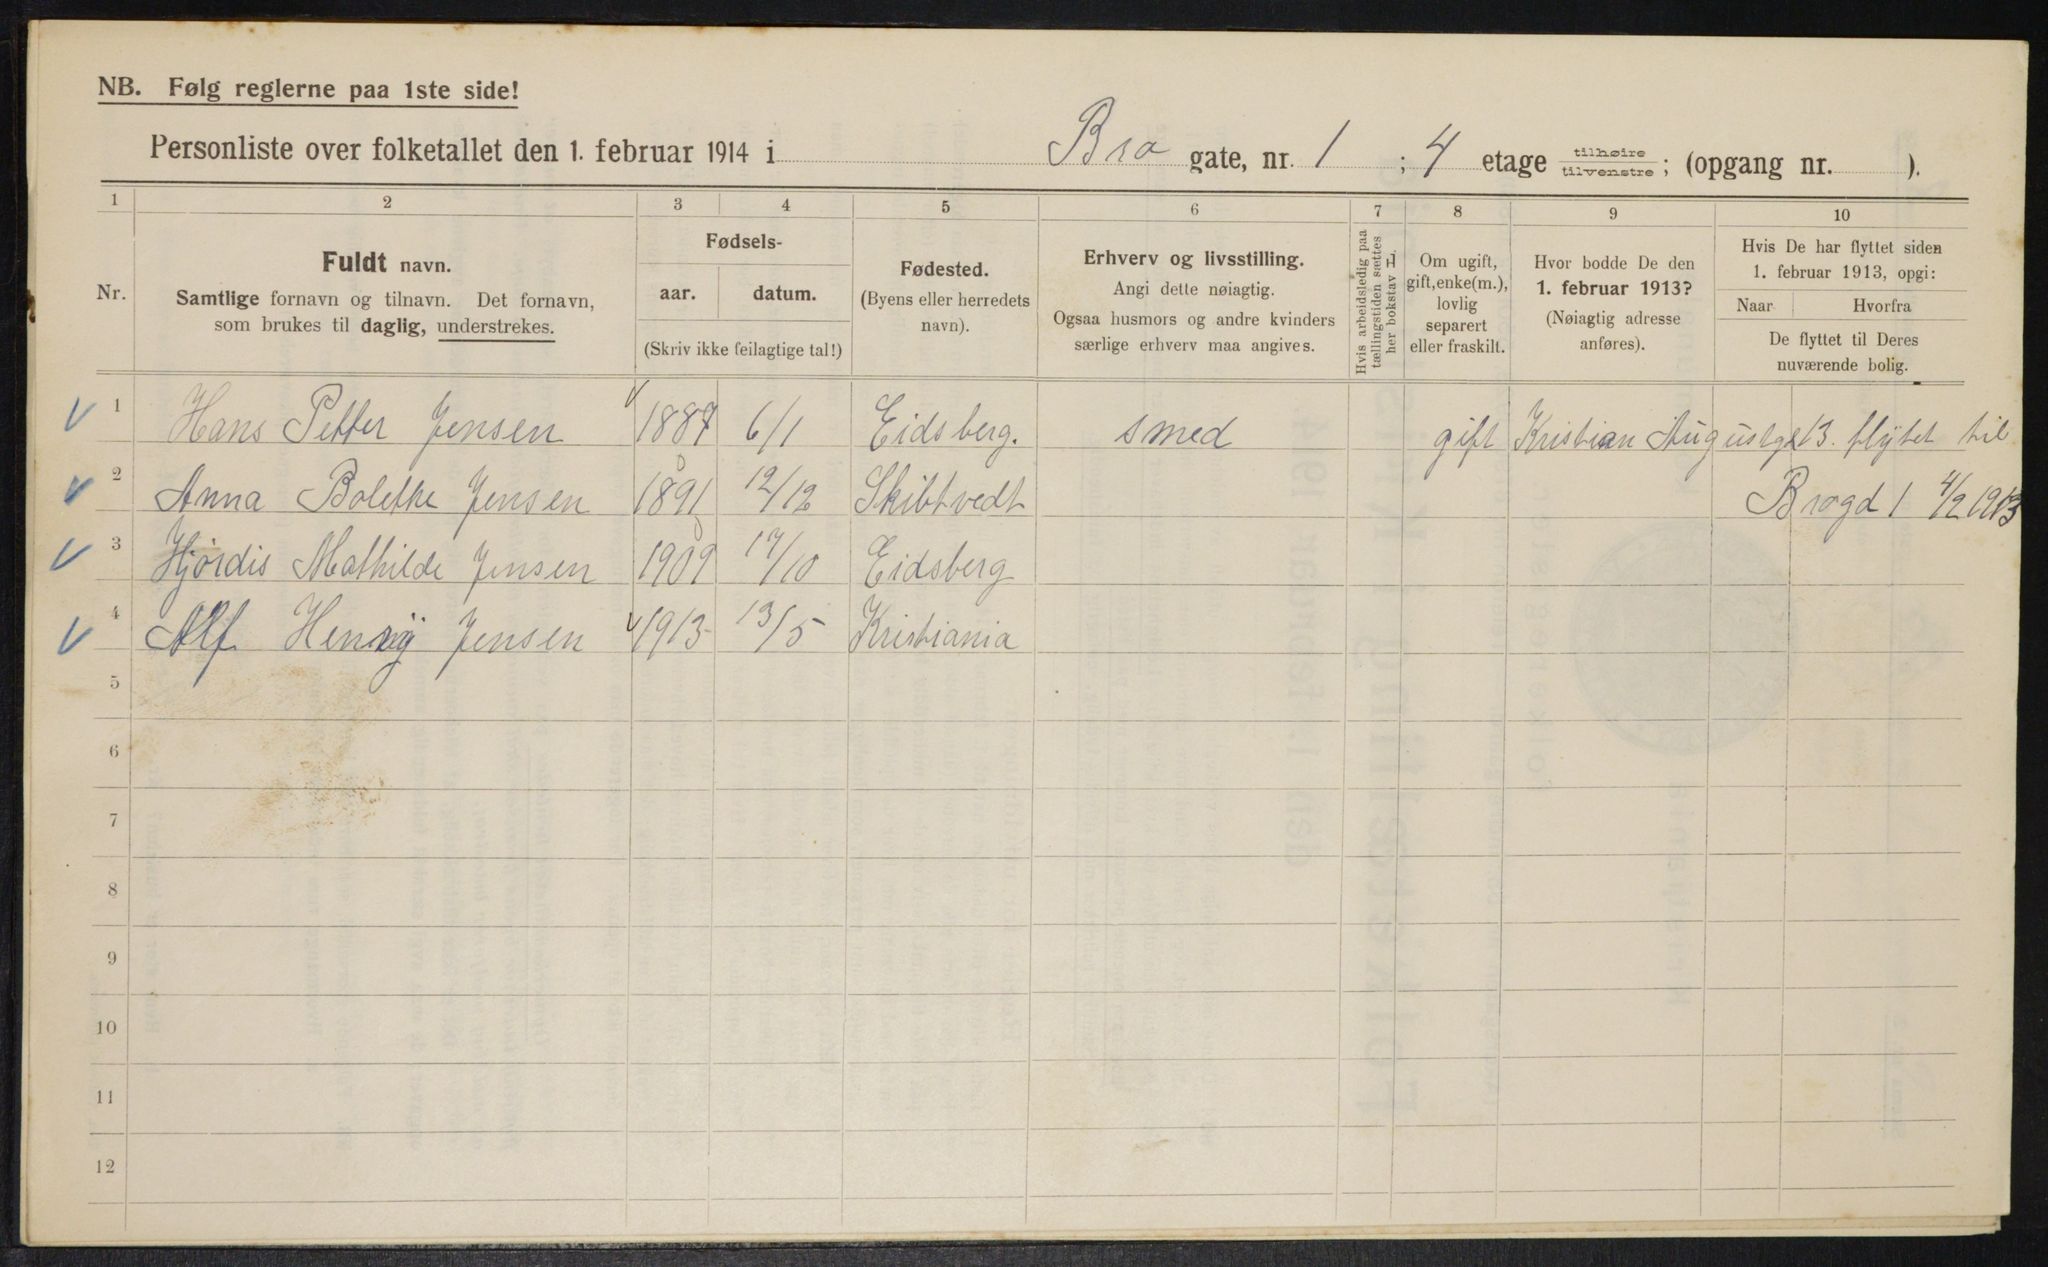 NB. Følg reglerne paa 1ste side!
Personliste over folketallet den 1. februar 1914 i Bro gate, nr. 1 ; 4 etage tilhøire/tilvenstre; (opgang nr. ).
1 2 3 4 5 6 7 8 9 10
Nr.
Fuldt navn.
Samtlige fornavn og tilnavn. Det fornavn,
som brukes til daglig, understrekes.
Fødsels-
aar. datum.
(Skriv ikke feilagtige tal!)
Fødested.
(Byens eller herredets
navn).
Erhverv og livsstilling.
Angi dette nøiagtig.
Ogsaa husmors og andre kvinders
særlige erhverv maa angives.
Hvis arbeidsledig paa
tællingstiden sættes
her bokstav L.
Om ugift,
gift, enke(m.),
lovlig
separert
eller fraskilt.
Hvor bodde De den
1. februar 1913?
(Nøiagtig adresse
anføres).
Hvis De har flyttet siden
1. februar 1913, opgi:
Naar Hvorfra
De flyttet til Deres
nuværende bolig.
1 Hans Petter Jensen 1887 6/1 Eidsberg. smed gift Kristian Augustgt 13. flytet til
2 Anna Bolette Jensen 1891 12/12 Skibtvedt Brogd 1 4/2 1913
3 Hjørdis Mathilde Jensen 1909 17/10 Eidsberg
4 Alf Henry Jensen 1913 13/5 Kristiania
5
6
7
8
9
10
11
12